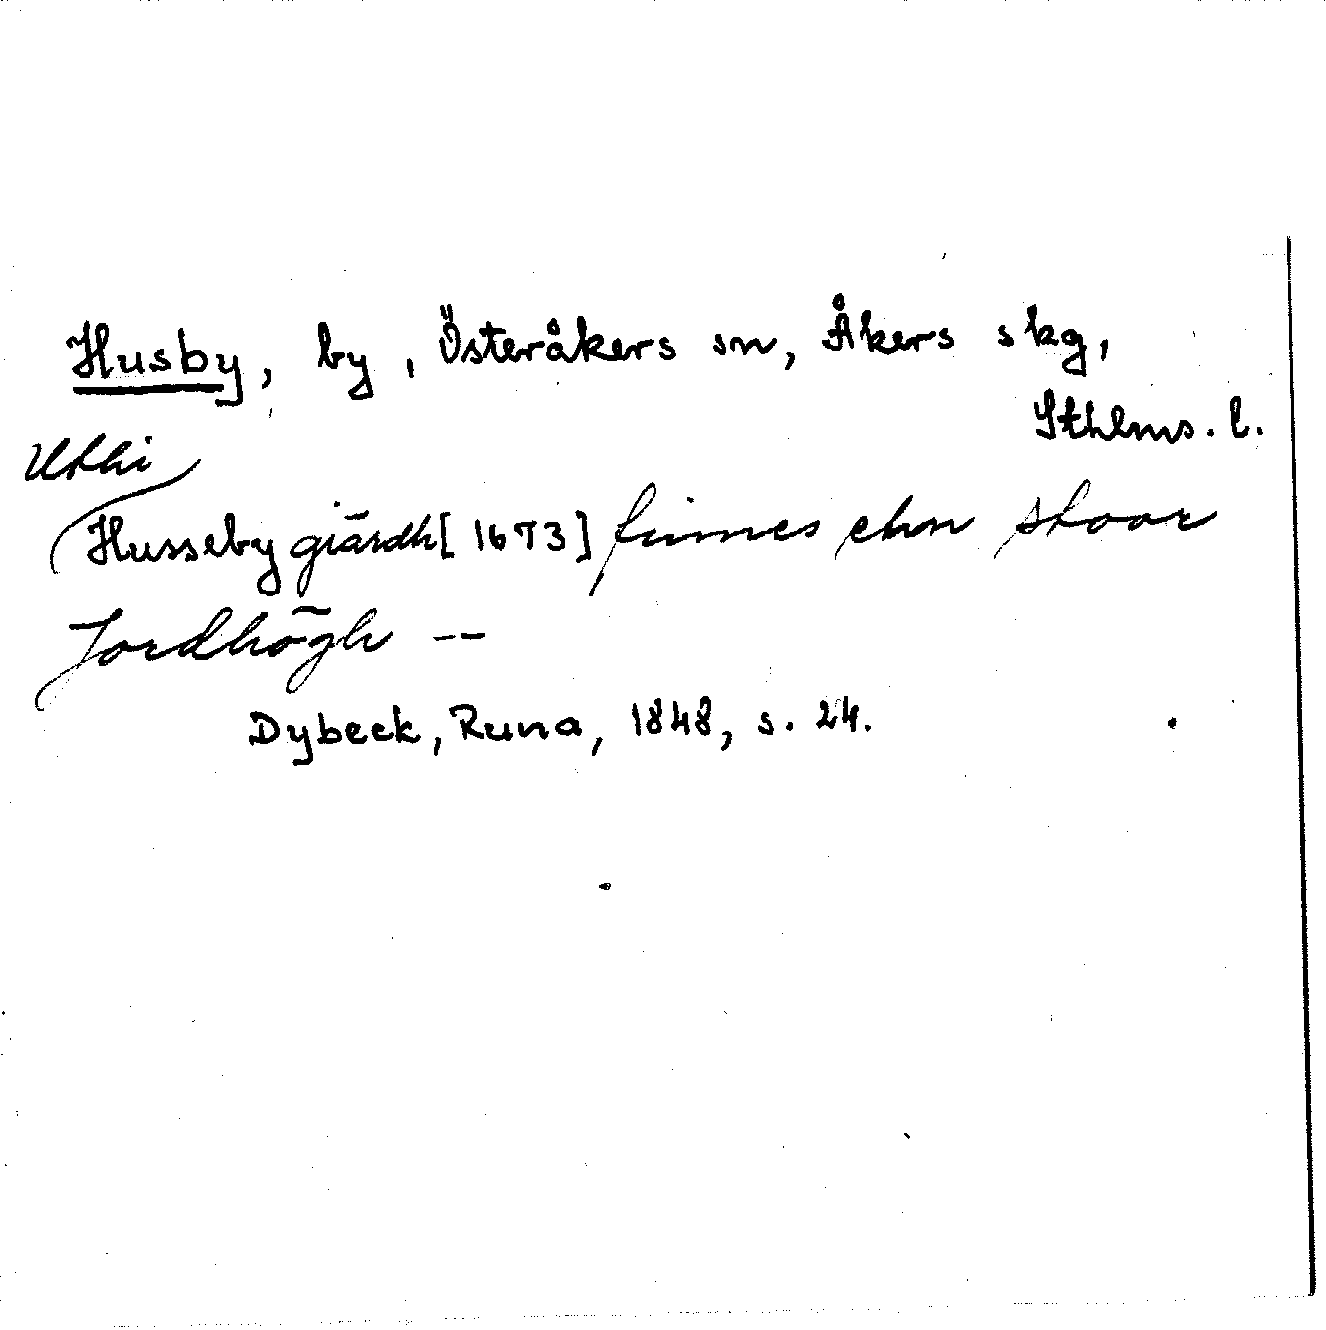 Husby, by, Österåkers sn, Åkers skg,
Sthlms. l.
Uthi
Husseby giärdh [1673] finnes ehn stoor
Jordhögh --
Dybeck, Runa, 1848, s. 24.